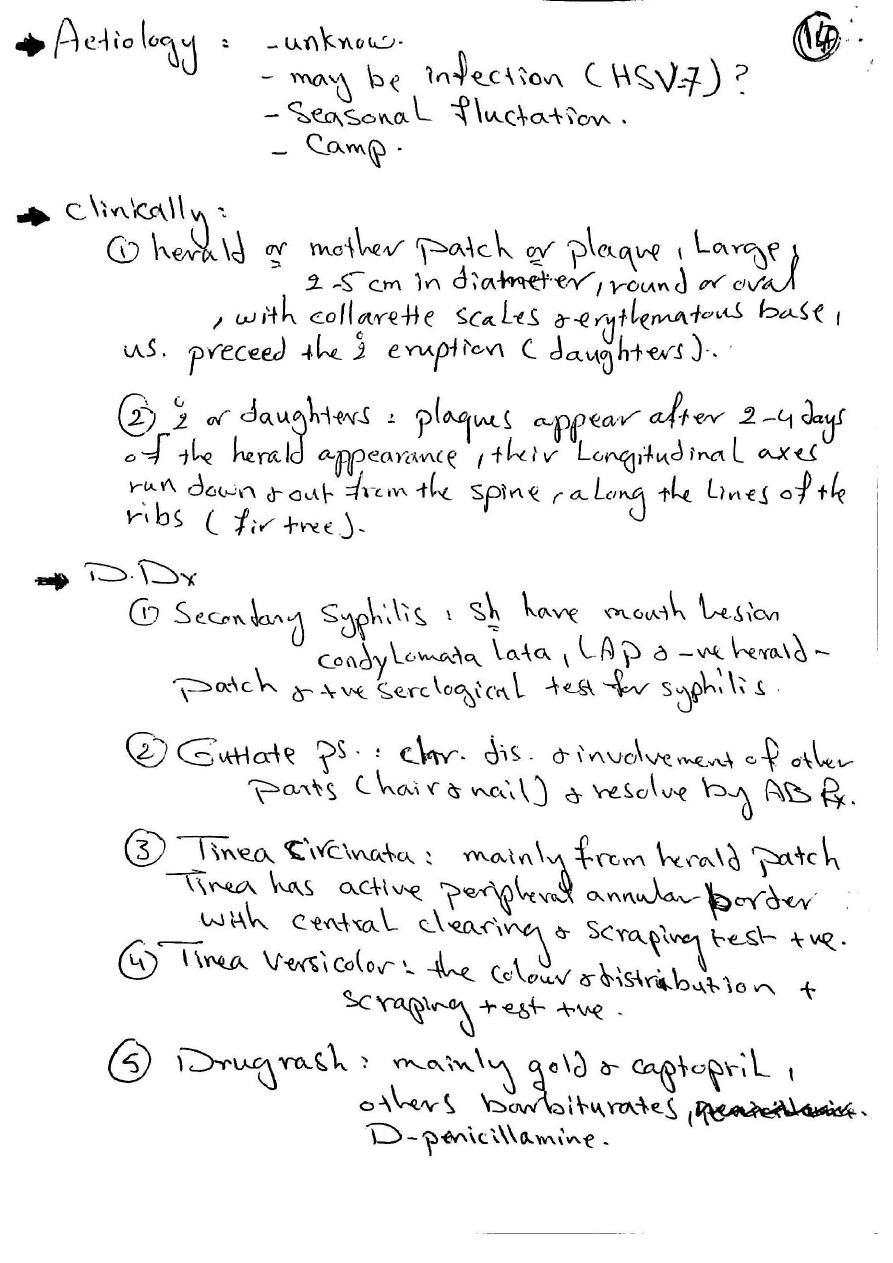 14
→ Aetiology : - unknow.
- may be infection (HSV-7) ?
- Seasonal fluctation.
- Camp.
→ Clinkally :
① herald or mother patch or plaque, Large,
2-5 cm in diatmeter, round or oval
, with collarette scales & erythematous base,
us. preceed the 2° eruption (daughters).
② 2° or daughters : plaques appear after 2-4 days
of the herald appearance, their Longitudinal axes
run down & out from the spine, along the Lines of the
ribs (fir tree).
→ D.Dx
① Secondary Syphilis : Sh have mouth Lesion
condylomata lata, LAP & -ve herald-
patch & +ve serological test for syphilis.
② Guttate ps. : chr. dis. & involvement of other
parts (hair & nail) & resolve by AB Rx.
③ Tinea Circinata : mainly from herald patch
Tinea has active peripheral annular border
with central clearing & scraping test +ve.
④ Tinea Versicolor : the colour & distribution +
scraping test +ve.
⑤ Drug rash : mainly gold & captopril,
others barbiturates,
D-penicillamine.